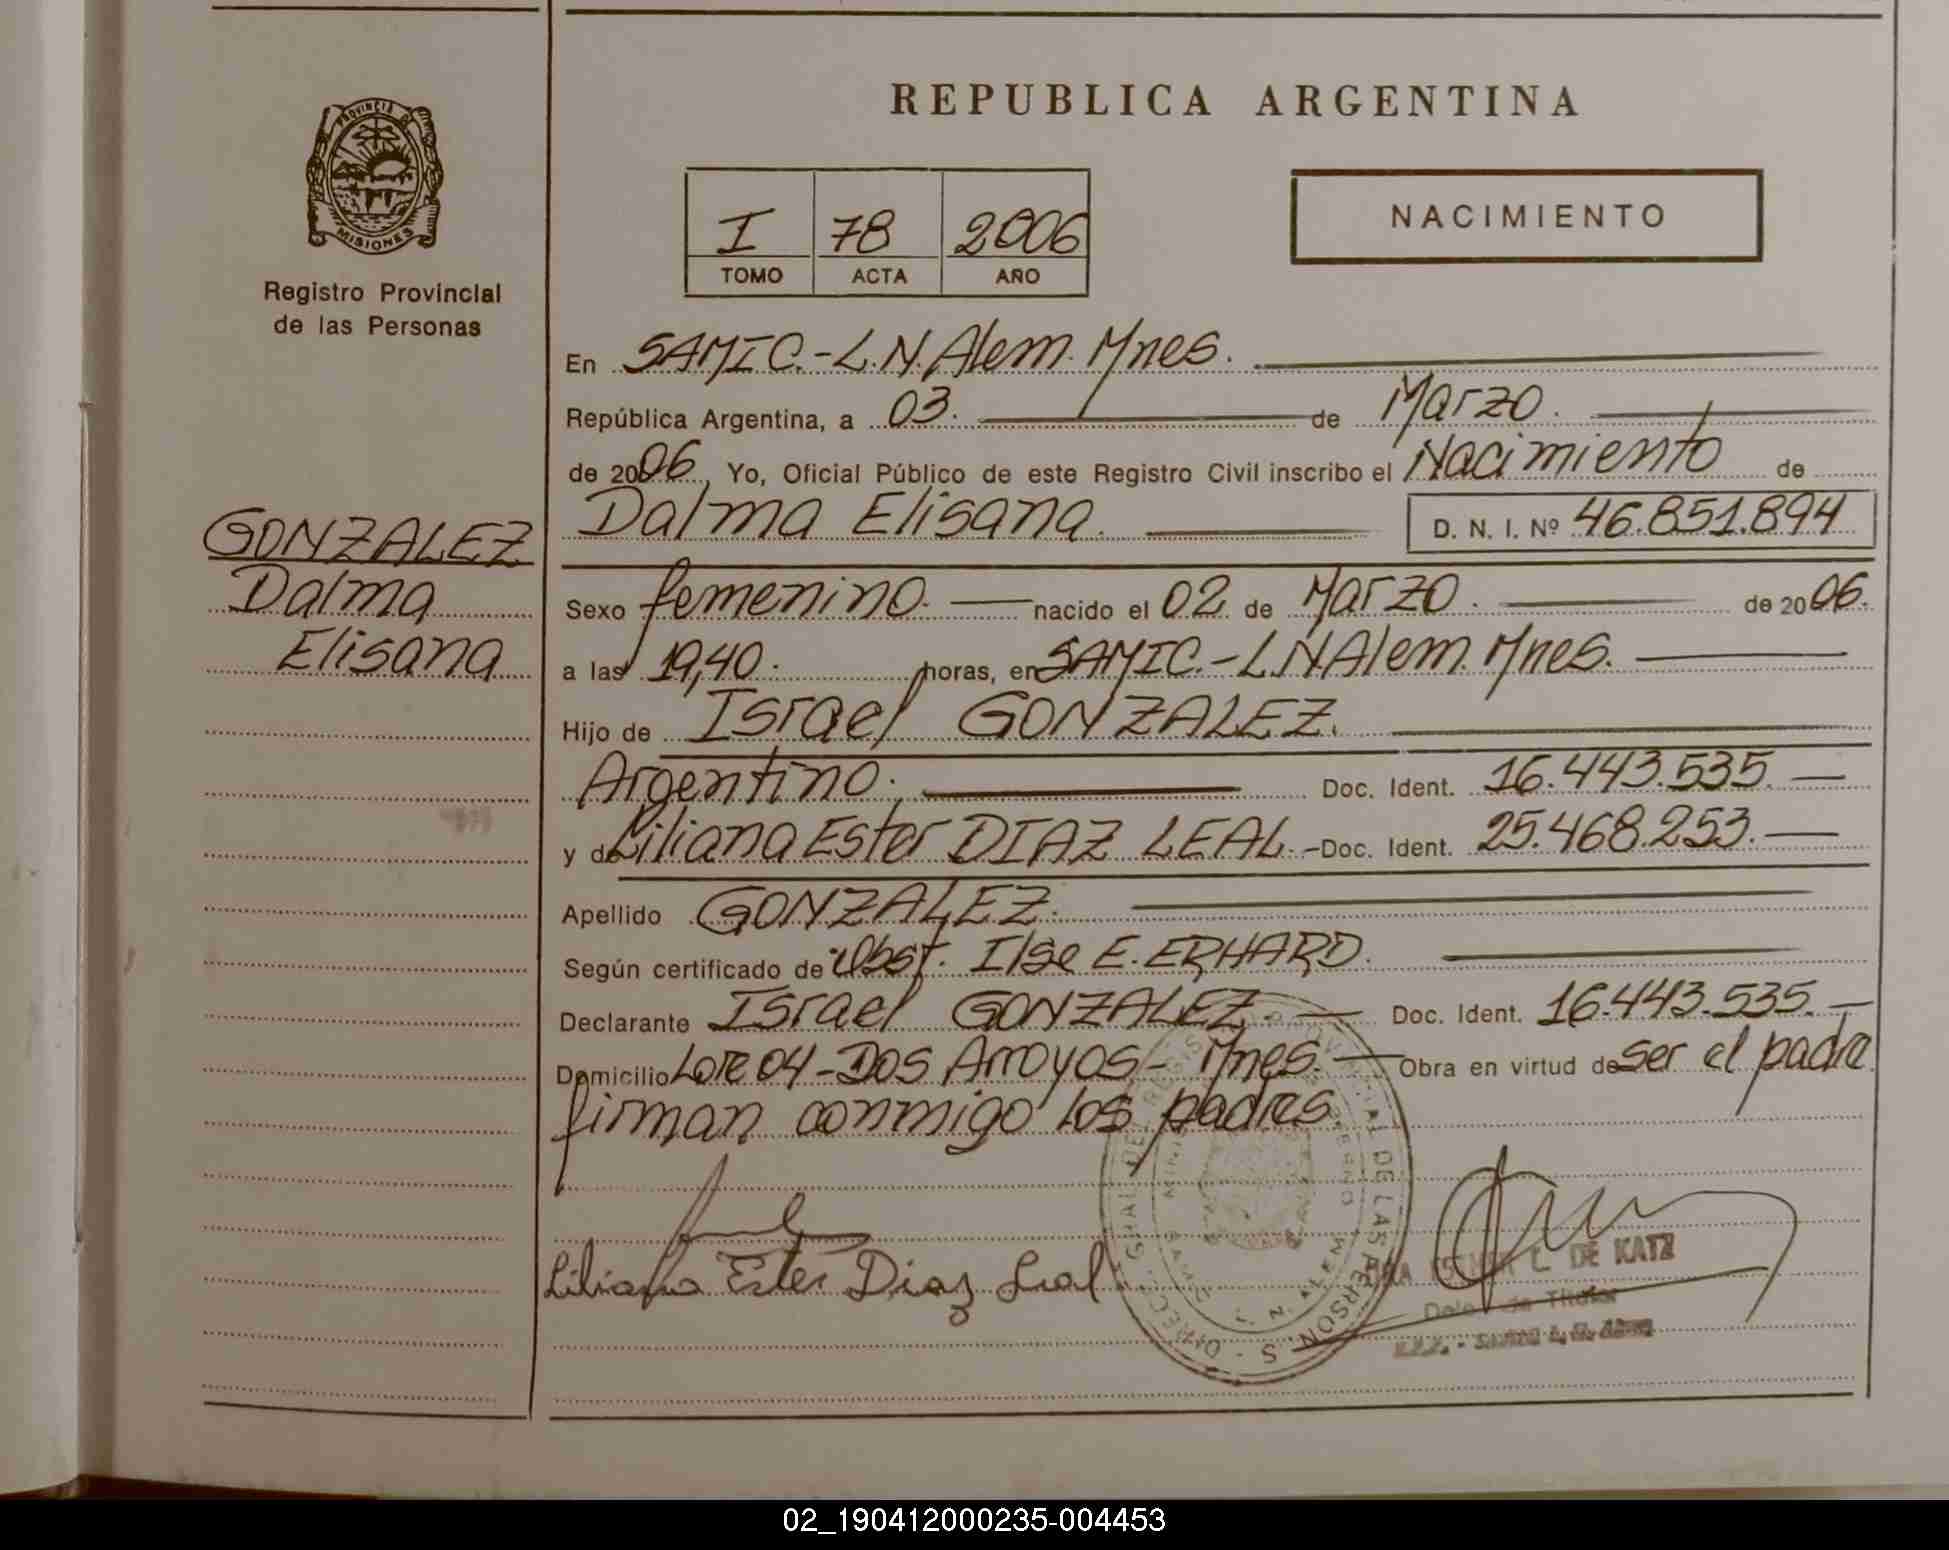 REPUBLICA ARGENTINA
PROVINCIA D
MISIONES
Registro Provincial
de las Personas
I 78 2006
TOMO ACTA AÑO
NACIMIENTO
En SAMIC.-L.N.Alem. Mnes.
República Argentina, a 03. de Marzo.
de 2006. Yo, Oficial Público de este Registro Civil inscribo el Nacimiento de
Dalma Elisana. D. N. I. Nº 46.851.894
GONZALEZ
Dalma
Elisana
Sexo femenino. nacido el 02 de Marzo. de 2006.
a las 19,40. horas, en SAMIC.-L.N.Alem. Mnes.
Hijo de Israel GONZALEZ.
Argentino. Doc. Ident. 16.443.535.
y de Liliana Ester DIAZ LEAL.- Doc. Ident. 25.468.253.
Apellido GONZALEZ.
Según certificado de Obst. Ilse E. ERHARD.
Declarante Israel GONZALEZ.- Doc. Ident. 16.443.535.-
Domicilio Lote 04-Dos Arroyos- Mnes.- Obra en virtud de ser el padre
firman conmigo los padres
Liliana Ester Diaz Leal
DE KATZ
Titular
02_190412000235-004453